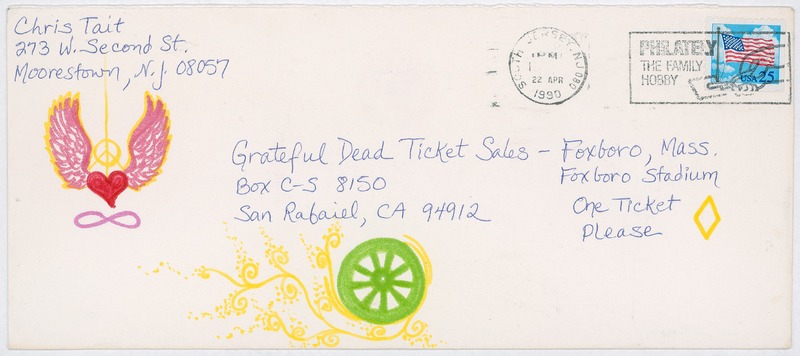 Chris Tait
273 W. Second St.
Moorestown, N.J. 08057
SOUTH JERSEY, NJ 080
PM
22 APR
1990
PHILATELY
THE FAMILY
HOBBY
USA 25
Grateful Dead Ticket Sales – Foxboro, Mass.
Box C-S 8150
San Rafaiel, CA 94912
Foxboro Stadium
One Ticket
Please